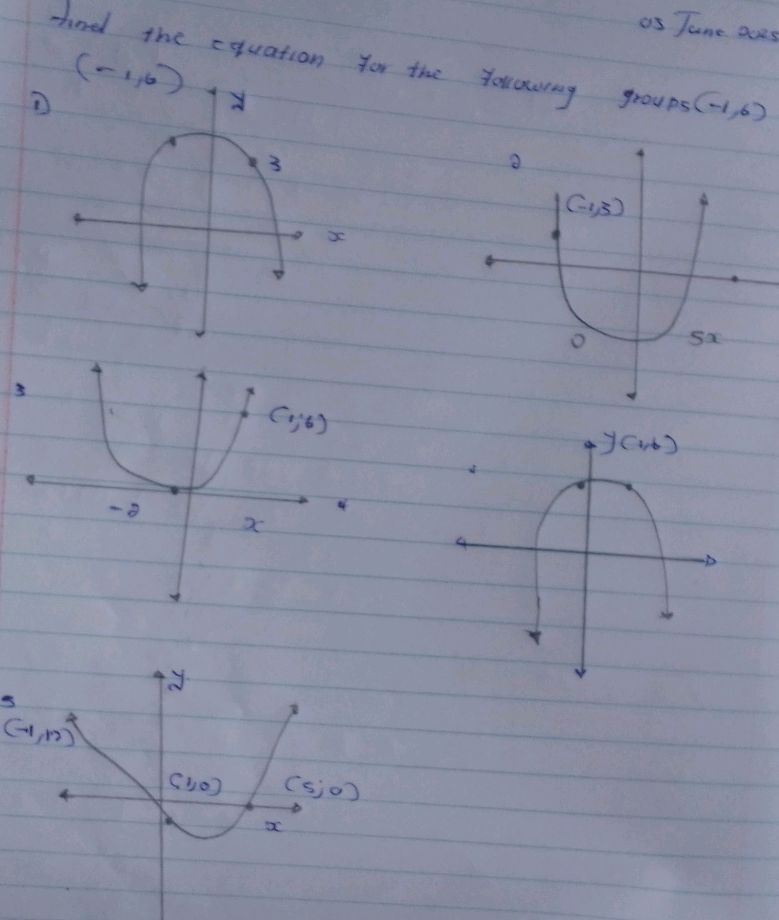 03 June 2025
find the equation for the following groups (-1,6)
(-1,6)
1) y
3
x
2
(-1,3)
0 5x
3
(1;6)
-2 x
4
y (1,6)
5 y
(-1,12)
(1,0) (5;0)
x